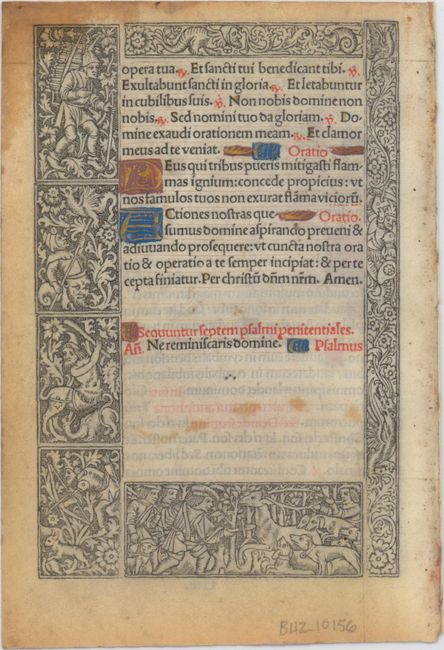 opera tua. ℟. Et sancti tui benedicant tibi. ℣.
Exultabunt sancti in gloria. ℟. Et letabuntur
in cubilibus suis. ℣. Non nobis domine non
nobis. ℟. Sed nomini tuo da gloriam. ℣. Do-
mine exaudi orationem meam. ℟. Et clamor
meus ad te veniat. Oratio
DEus qui tribus pueris mitigasti flam-
mas ignium: concede propicius: vt
nos famulos tuos non exurat flāma viciorū.
ACtiones nostras que Oratio.
sumus domine aspirando preueni &
adiuuando prosequere: vt cuncta nostra ora
tio & operatio a te semper incipiat: & per te
cepta finiatur. Per christū dñm nr̄m. Amen.
Sequuntur septem psalmi penitentiales.
Añ. Ne reminiscaris domine. Psalmus
BHZ-10156